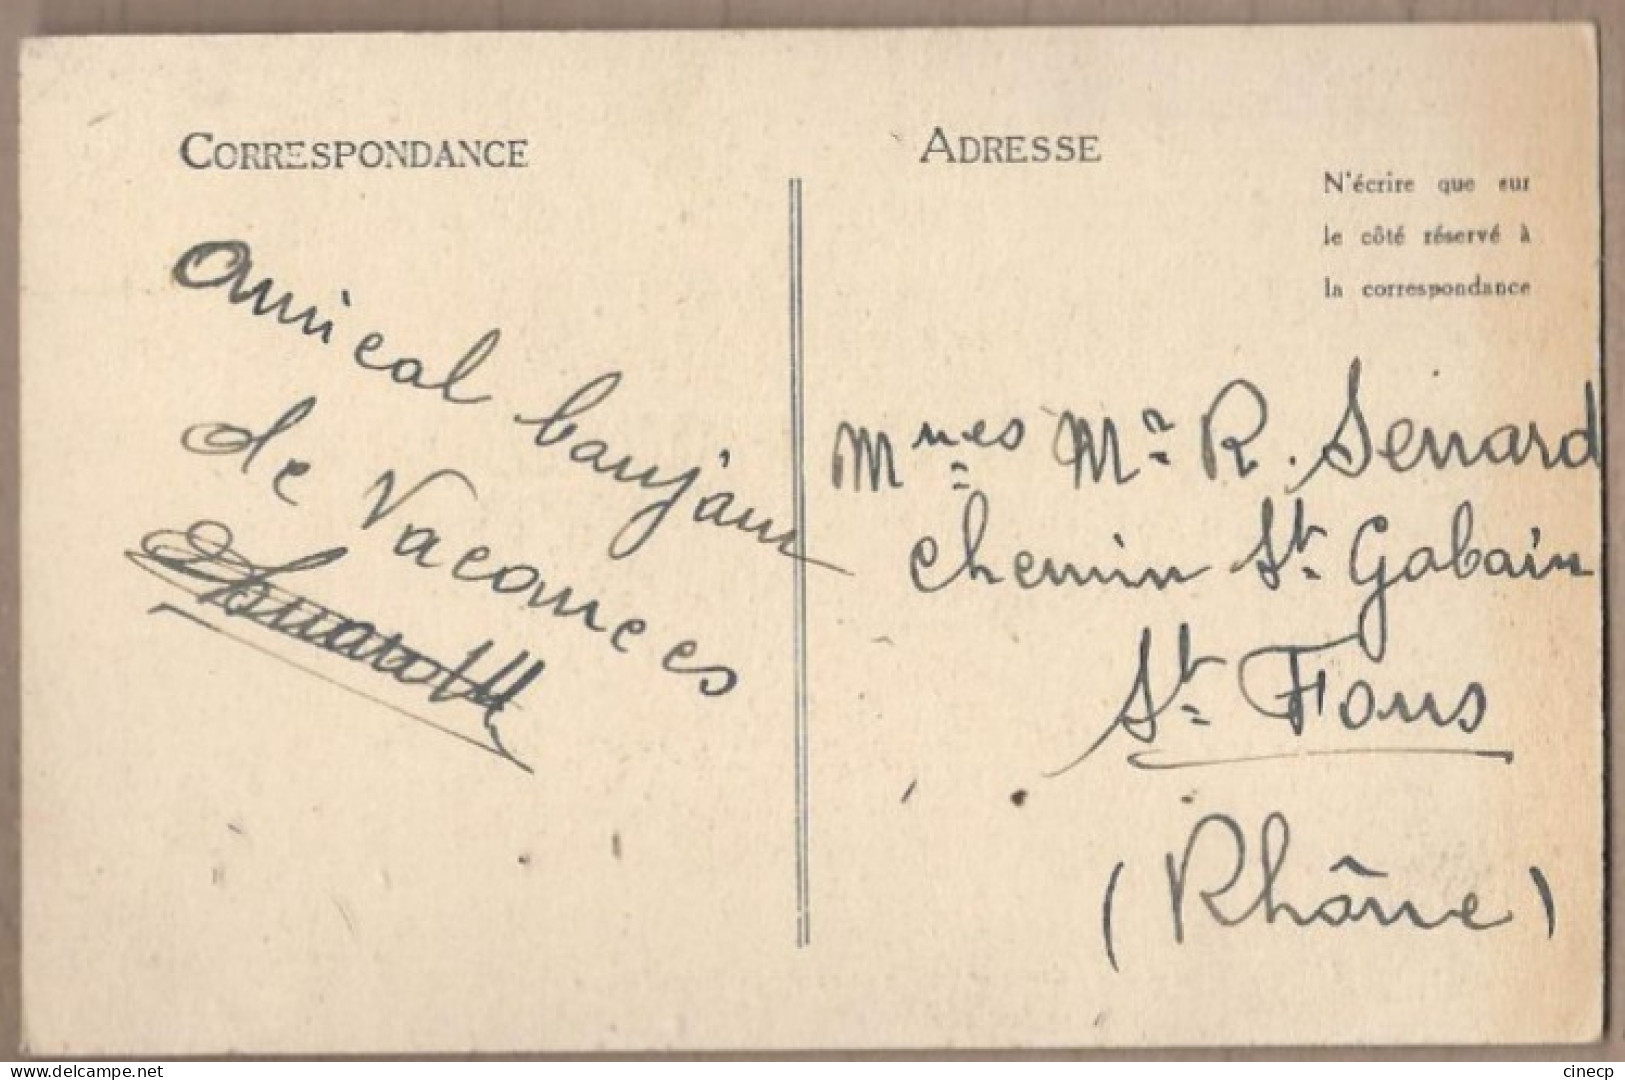 CORRESPONDANCE
Amical bonjour
de Vacances
ADRESSE
N'écrire que sur
le côté réservé à
la correspondance
Mmes Mr R. Senard
Chemin St Gobain
St Fons
(Rhône)
www.delcampe.net
cinecp